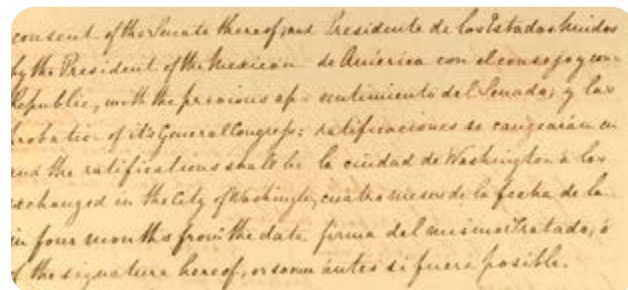 consent of the Senate thereof; and
by the President of the Mexican
Republic, with the previous ap-
probation of its General Congress:
and the ratifications shall be
exchanged in the City of Washington,
in four months from the date
of the signature hereof, or sooner
Presidente de los Estados Unidos
de América con el consejo y con-
sentimiento del Senado; y las
ratificaciones se cangearán en
la ciudad de Washington a los
cuatro meses de la fecha de la
firma del mismo Tratado, ó
ántes si fuere posible.